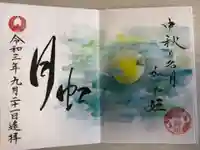 中秋の名月
月虹
令和三年九月二十一日遙拝